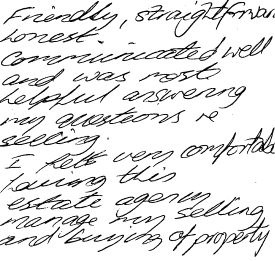 Friendly, straightforwar
honest
communicated well
and was most
helpful answering
my questions re
selling.
I felt very comfortabl
having this
estate agency
manage my selling
and buying of property